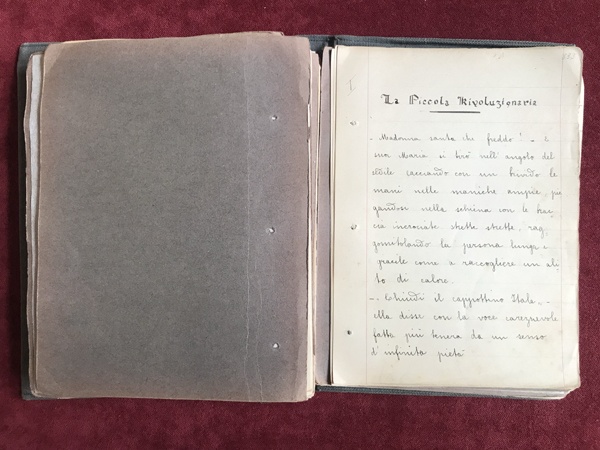 I.
La Piccola Rivoluzionaria
- Madonna santa che freddo! - e
suor Maria si tirò nell'angolo del
sedile cacciando con un brivido le
mani nelle maniche ampie, pie
gandosi nella schiena con le brac
cia incrociate strette strette, rag
gomitolando la persona lunga e
gracile come a raccogliere un ali
to di calore.
- Chiudi il cappottino Itala, -
ella disse con la voce carezzevole
fatta più tenera da un senso
d'infinita pietà